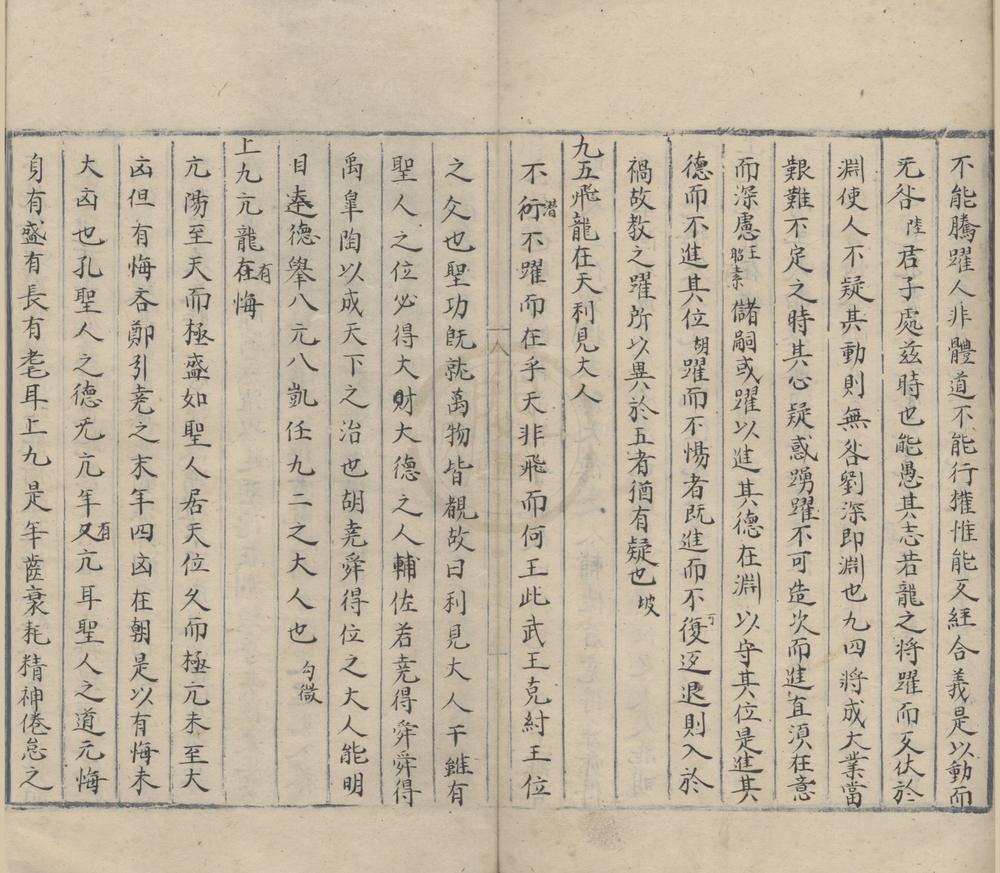 不能騰躍人非體道不能行權惟能反經合義是以動而
无咎陸君子處茲時也能愚其志若龍之將躍而又伏於
淵使人不疑其動則無咎劉深即淵也九四將成大業當
艱難不定之時其心疑惑踴躍不可造次而進直須在意
而深慮王昭素儲嗣或躍以進其德在淵以守其位是進其
德而不進其位胡躍而不惕者既進而不可復退則入於
禍故教之躍所以異於五者猶有疑也坡
九五飛龍在天利見大人
不衍潛不躍而在乎天非飛而何王此武王克紂王位
之爻也聖功既就萬物皆覩故曰利見大人干雖有
聖人之位必得大財大德之人輔佐若堯得舜舜得
禹臯陶以成天下之治也胡堯舜得位之大人能明
目達德舉八元八凱任九二之大人也勾微
上九亢龍在有悔
亢陽至天而極盛如聖人居天位久而極亢未至大
凶但有悔吝鄭引堯之末年四凶在朝是以有悔未
大凶也孔聖人之德无亢年又有亢耳聖人之道亢悔
身有盛有長有耄耳上九是年齒衰耗精神倦怠之